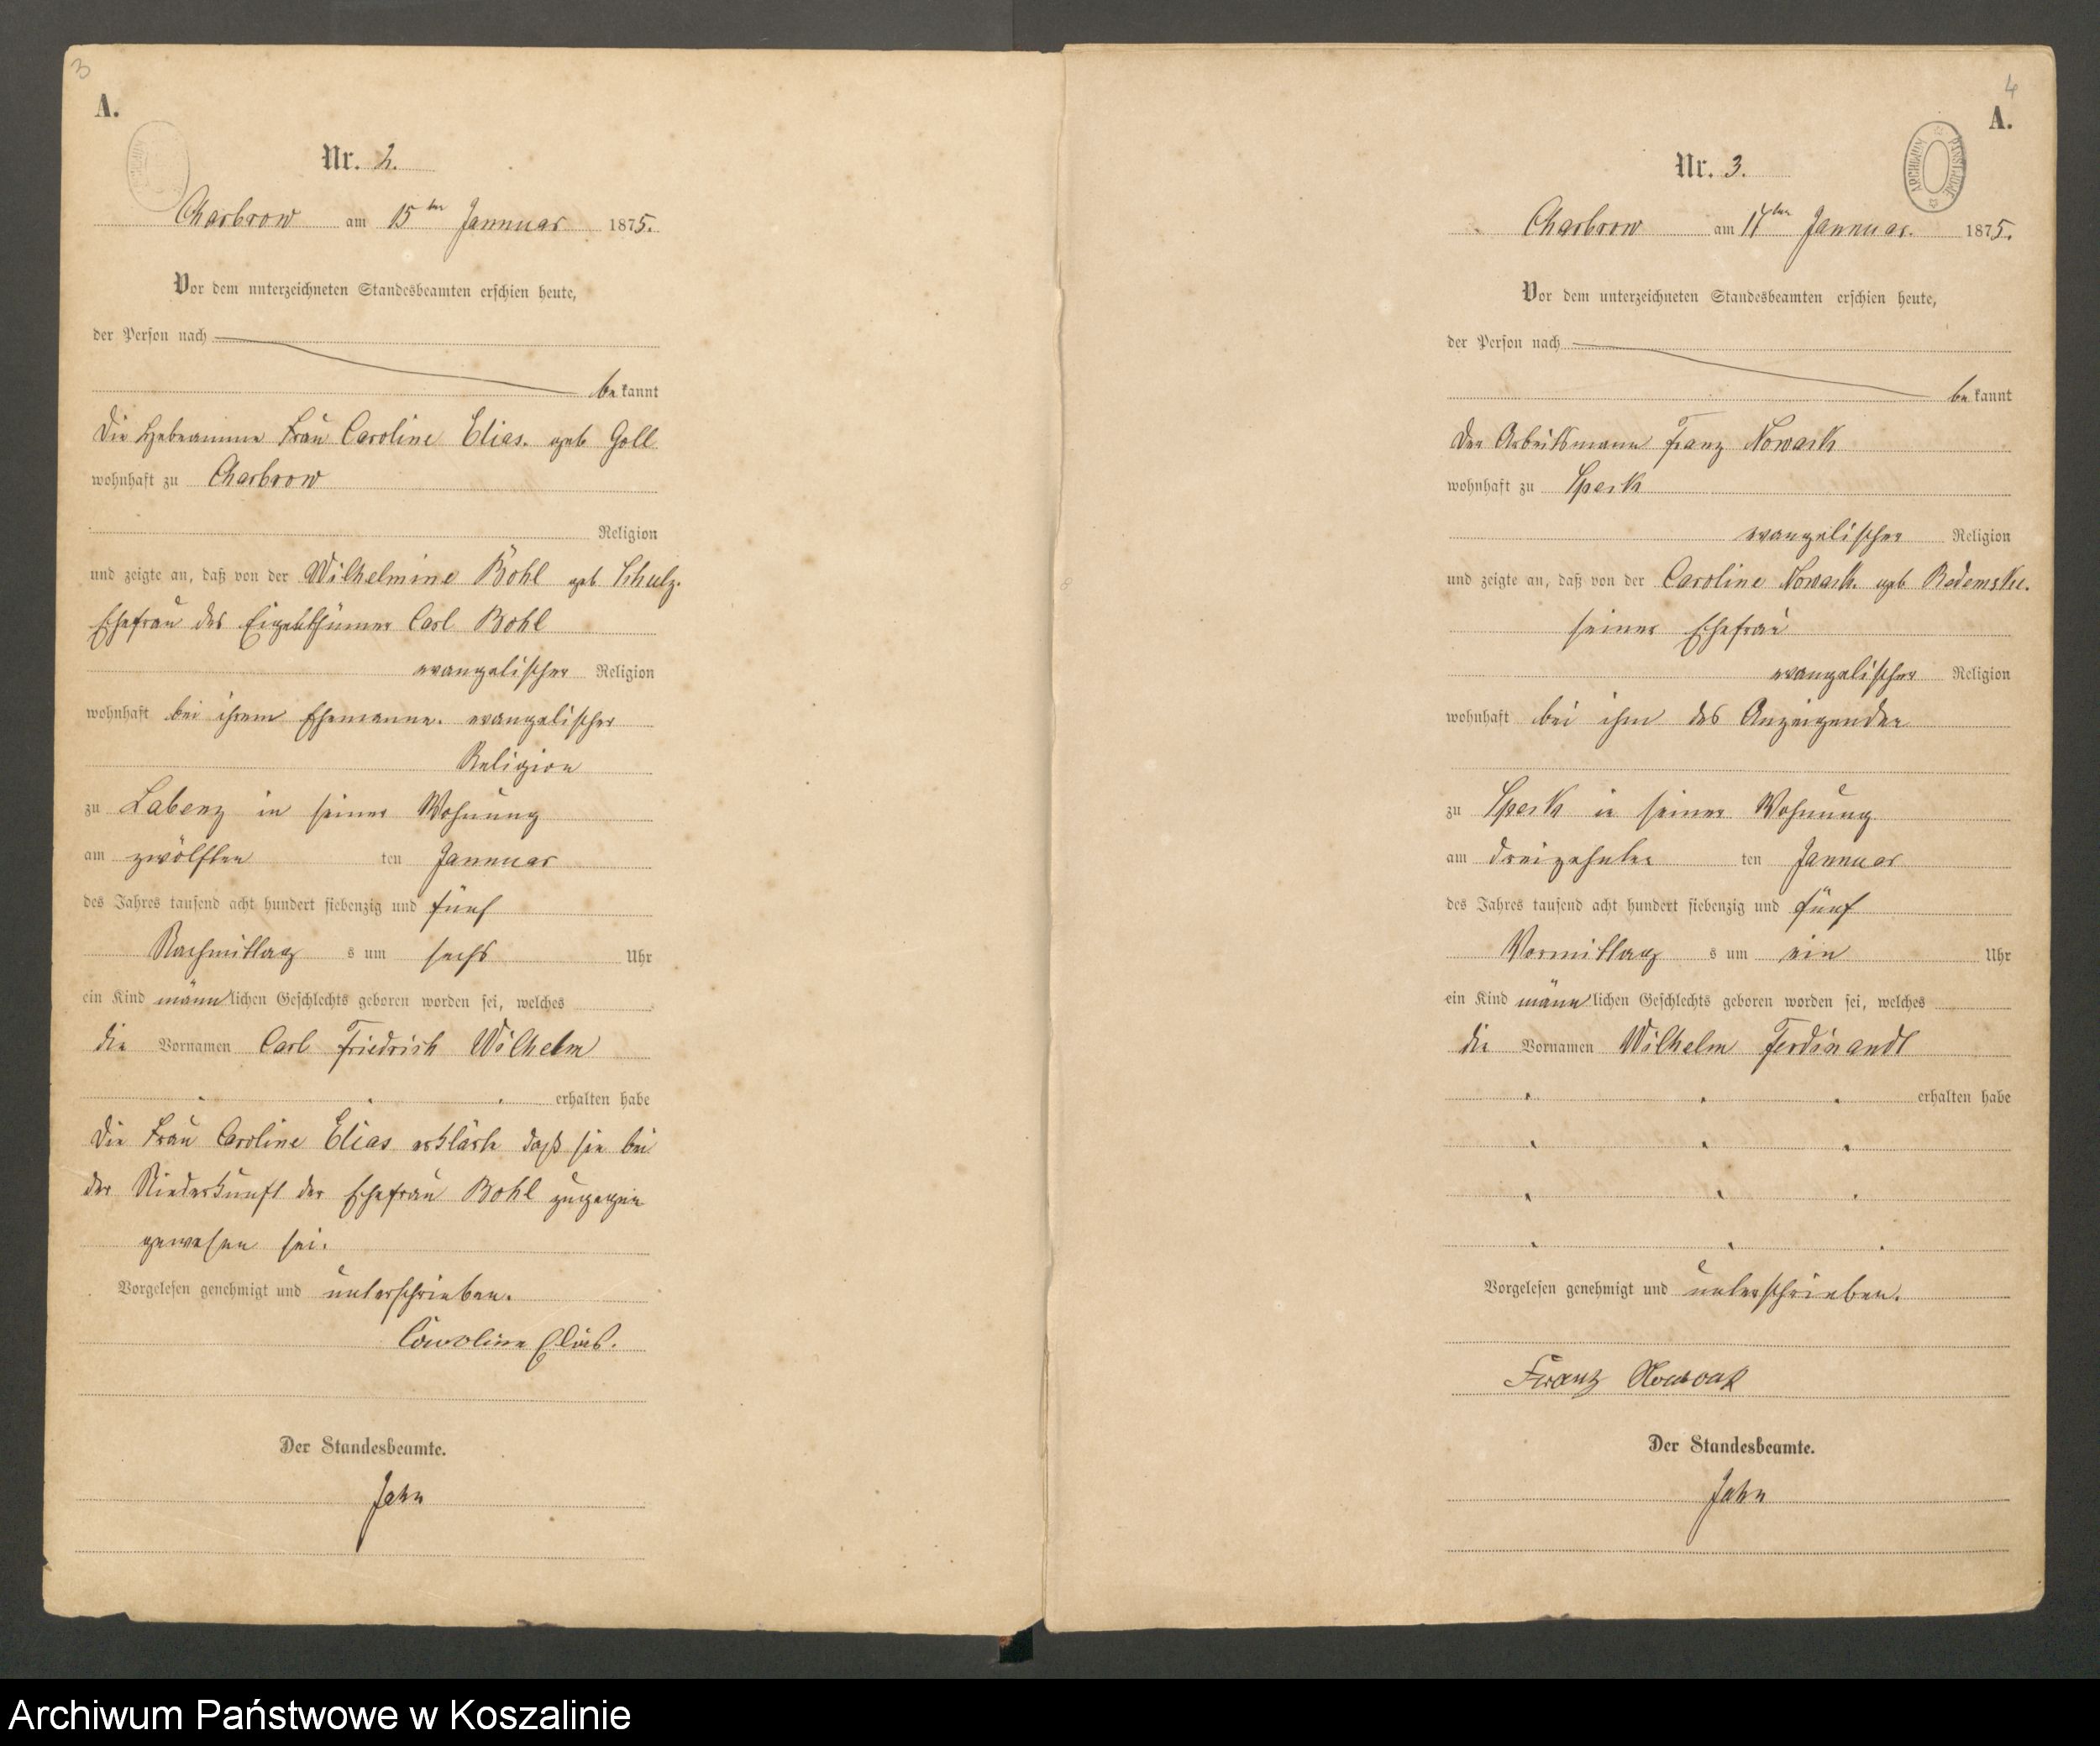 3
A.
Nr. 2.
Charbrow am 15ten Jannuar 1875.
Vor dem unterzeichneten Standesbeamten erschien heute,
der Person nach
bekannt
Die Hebeamme Frau Caroline Elias. geb Goll
wohnhaft zu Charbrow
Religion
und zeigte an, daß von der Wilhelmine Bohl geb Schulz.
Ehefrau des Eigenthümer Carl Bohl
evangelischer Religion
wohnhaft bei ihrem Ehemanne. evangelischer
Religion
zu Labenz in seiner Wohnung
am zwölften ten Jannuar
des Jahres tausend acht hundert siebenzig und fünf
Nachmittag s um sechs Uhr
ein Kind männlichen Geschlechts geboren worden sei, welches
die Vornamen Carl Friedrich Wilhelm
erhalten habe
Die Frau Caroline Elias erklärte daß sie bei
der Niederkunft der Ehefrau Bohl zugegen
gewesen sei.
Vorgelesen genehmigt und unterschrieben.
Caroline Elias.
Der Standesbeamte.
Jahn
4
A.
ARCHIWUM
Nr. 3.
Charbrow am Jannuar. 1875.
Vor dem unterzeichneten Standesbeamten erschien heute,
der Person nach
bekannt
Der Arbeitsmann Franz Nowack
wohnhaft zu Speck
evangelischer Religion
und zeigte an, daß von der Caroline Nowack. geb
seiner Ehefrau
evangelischer Religion
wohnhaft bei ihm des Anzeigenden
zu Speck in seiner Wohnung
am dreizehnten ten Jannuar
des Jahres tausend acht hundert siebenzig und fünf
Vormittag s um ein Uhr
ein Kind männlichen Geschlechts geboren worden sei, welches
die Vornamen Wilhelm Ferdinandt
erhalten habe
Vorgelesen genehmigt und unterschrieben.
Franz Nowack
Der Standesbeamte.
Jahn
Archiwum Państwowe w Koszalinie